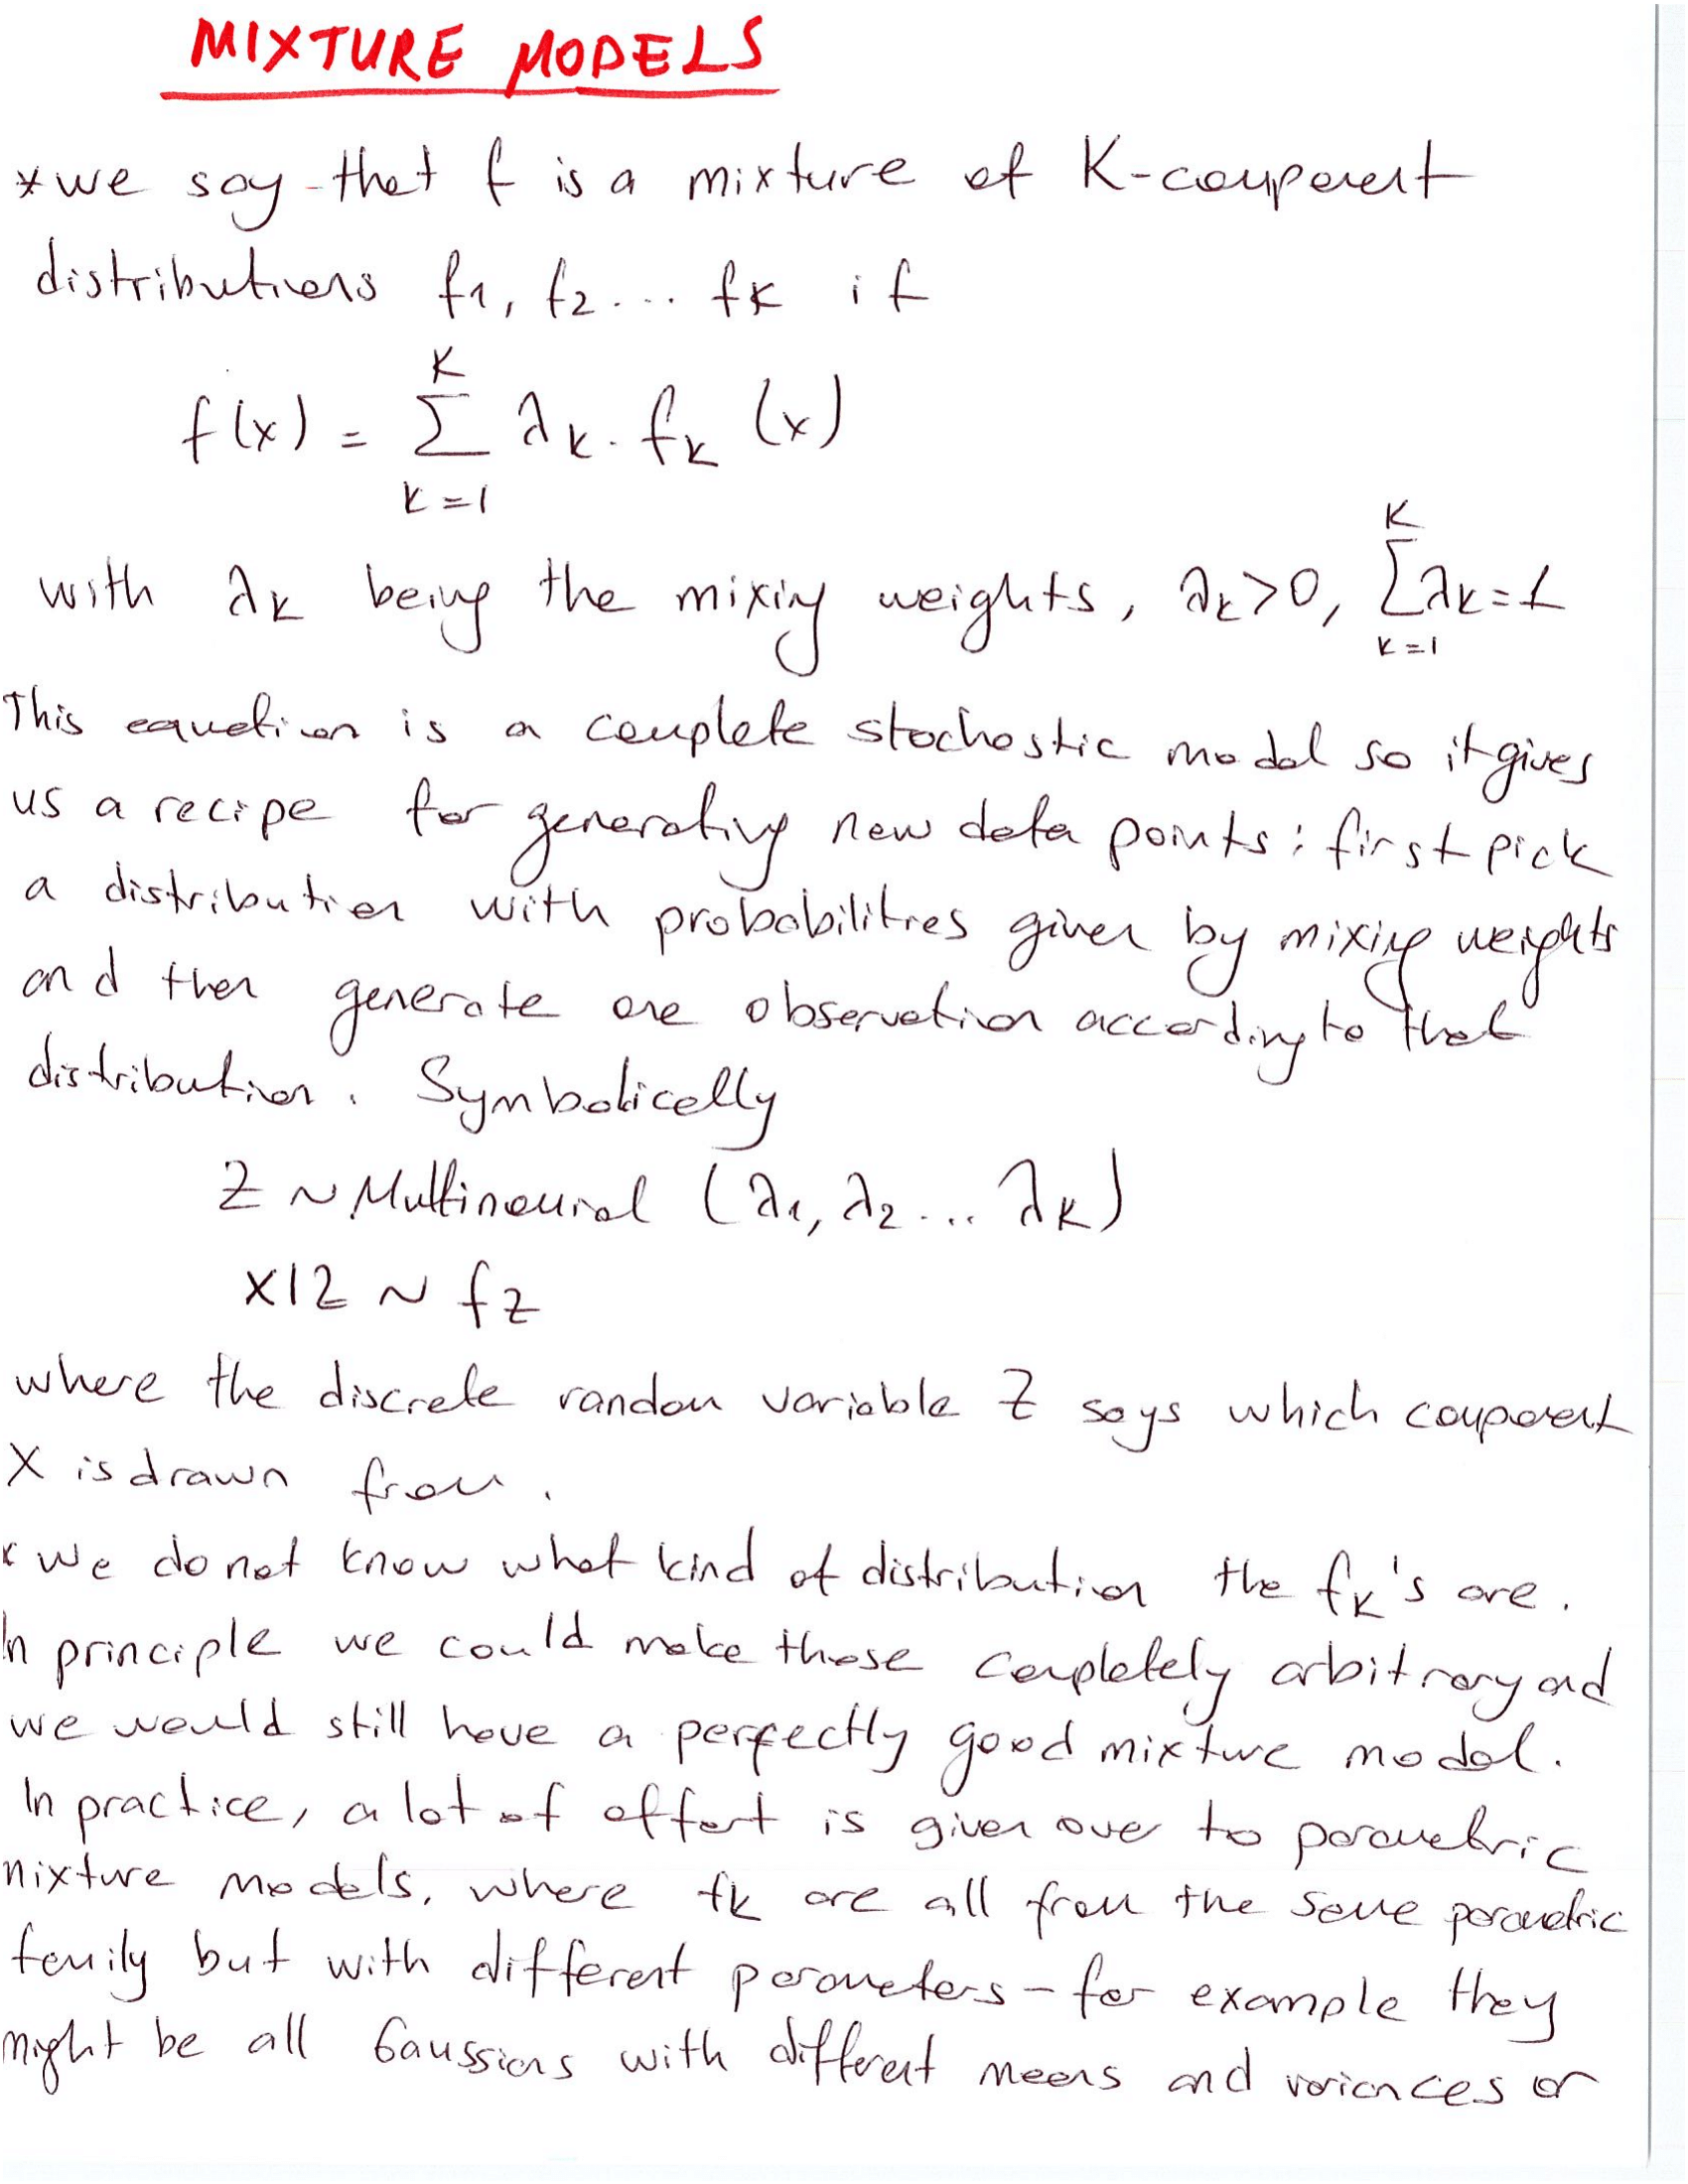 MIXTURE MODELS
* we say that f is a mixture of K-component
distributions f1, f2... fK if
K
f(x) = Σ λk. fk (x)
k=1
K
with λk being the mixing weights, λk>0, Σλk=1
k=1
This equation is a complete stochastic model so it gives
us a recipe for generating new data points: first pick
a distribution with probabilities given by mixing weights
and then generate one observation according to that
distribution. Symbolically
Z ~ Multinomial (λ1, λ2... λK)
X|Z ~ fZ
where the discrete random variable Z says which component
X is drawn from.
* We do not know what kind of distribution the fk's are.
In principle we could make these completely arbitrary and
we would still have a perfectly good mixture model.
In practice, a lot of effort is given over to parametric
mixture models, where fk are all from the same parametric
family but with different parameters - for example they
might be all Gaussians with different means and variances or